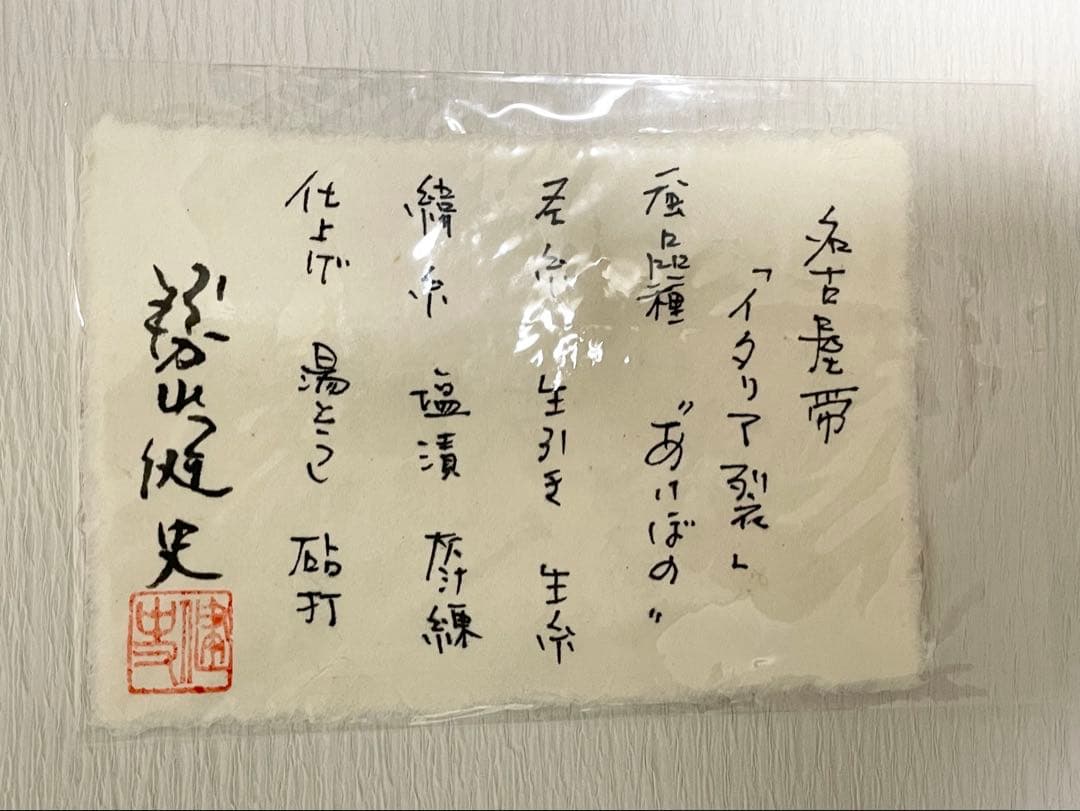 名古屋帯
「イタリア裂」
蚕品種 “あけぼの”
経糸 生引き 生糸
緯糸 塩漬 灰汁練
仕上げ 湯とうし 砧打
勝山健史
健史